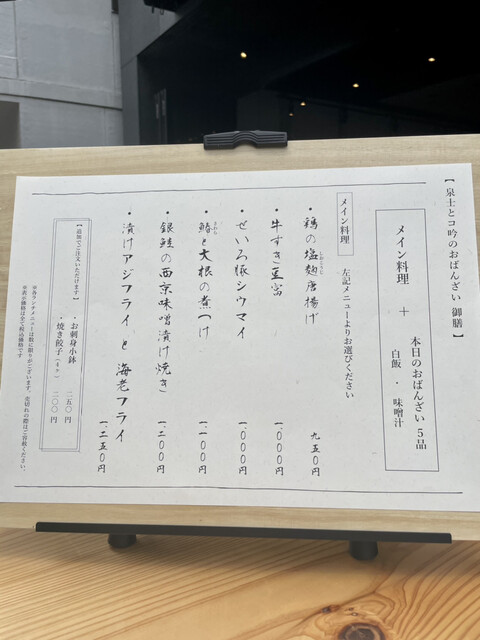 【 泉士とコ吟のおばんざい 御膳 】
メイン料理 + 本日のおばんざい 5品
白飯 ・ 味噌汁
メイン料理 左記メニューよりお選びください
・鶏の塩麹唐揚げ 九五〇円
しおこうじ
・牛すき豆富 一、〇〇〇円
・せいろ豚シウマイ 一、〇〇〇円
・鰆と大根の煮つけ 一、一〇〇円
さわら
・銀鮭の西京味噌漬け焼き 一、二〇〇円
・漬けアジフライと海老フライ 一、二五〇円
【追加でご注文いただけます】
・お刺身小鉢 二五〇円
・焼き餃子 二〇〇円
※各ランチメニューは数に限りがございます。売切れの際はご容赦ください。
※表示価格は全て税込価格です